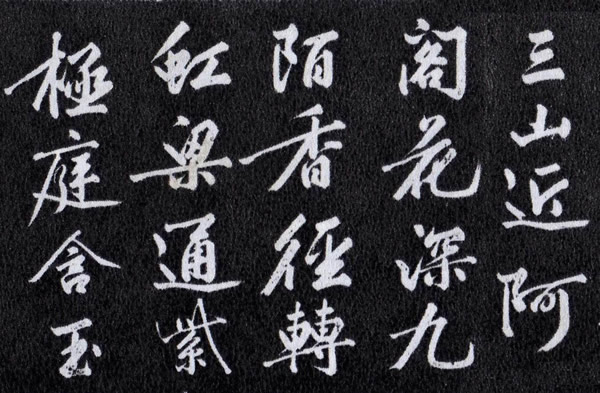 三山近阿
閣花深九
陌香徑轉
虹梁通紫
極庭含玉